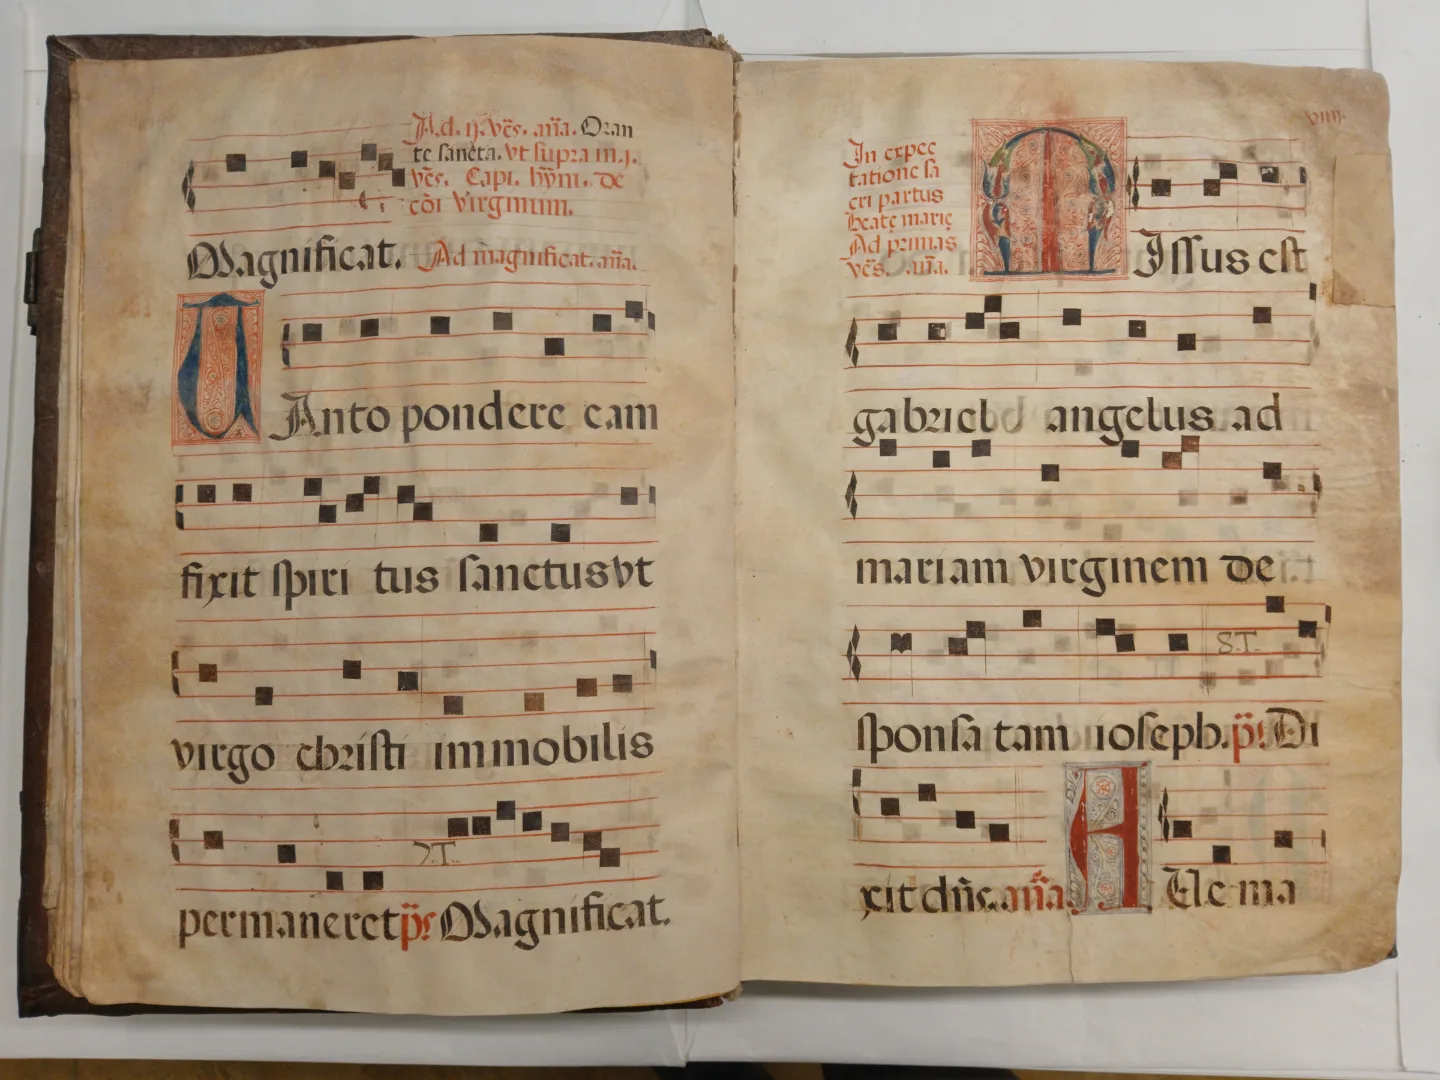 Ad. ij. vẽs. añа. Oran
te sancta. vt supra in. j.
vẽs. Capi. hỹm. de
cõi virginum.
Magnificat. Ad magnificat. añа.
TAnto pondere eam
fixit spiri tus sanctus vt
virgo christi immobilis
permaneret p̃s Magnificat.
viiij.
In expec
tatione sa
cri partus
beate marie
Ad primas
vẽs. añа.
MIssus est
gabriel angelus ad
mariam virginem de
S.T.
sponsa tam ioseph. p̃s. Di
xit dñs. añа AUe ma